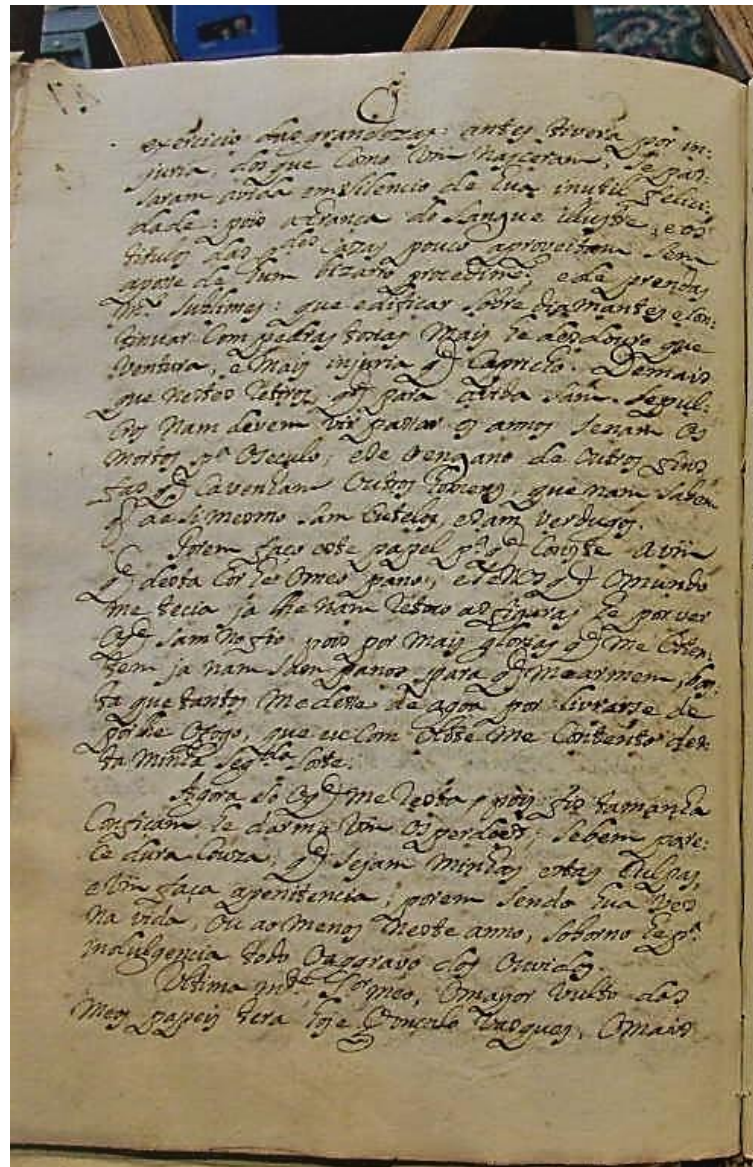 exercicio das grandezas: antes tivera por in:
juria, dos que como Vm nasceram, se pas:
saram avida em silencio de hua inutil felici:
dade: pois a herança do sangue illustre, e os
titulos das cazas pouco aproveitam sem
apoyo de hum bizarro procedimto: e de prendas
mto sublimes: que edificar sobre diamantes e con:
tinuar com pedras toscas mais he desdouro que
Ventura, e mais injuria q Capricho. Demais
que nestes retiros, q para avida sam sepul:
cros nam devem vir passar os annos senam os
mortos pa o seculo; e de engano de outros
q outros homens, que nam sabem
q de si mesmo sam cutelos, e sam verdugos.
Porem faço este papel pa q conste a Vm
q desta cor he o meo pano; e q o mundo
me tecia ja lhe nam as figuras he por ver
q sam no fio pois por mais glorias q me
tem ja nam sam panos para q me armem, bas:
ta que tantos me deite de agoa por livrarse de
porlhe o fogo, que eu com este me contento des:
ta minha segda sorte.
Agora so o q me resta, pois fiz tamanha
confiçam he darme Vm os perdoes; se bem pare:
ce dura couza, q sejam minhas estas culpas,
e Vm faça apenitencia; porem sendo hua ves
na vida, ou ao menos neste anno, soborno he pa
indulgencia todo o aggravo dos ouvidos.
Ultimamte Sor meo, o mayor vulto das
meos papeis tera hoje Gonçalo Vasques, o mais